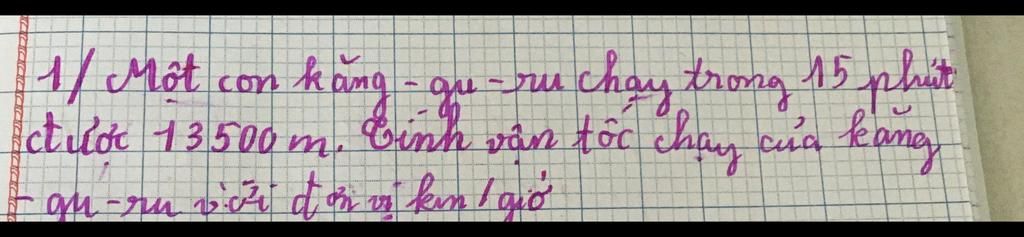 1/ Một con kăng-gu-ru chạy trong 15 phút
được 13500m. Tính vận tốc chạy của kăng
-gu-ru với đơn vị km/giờ